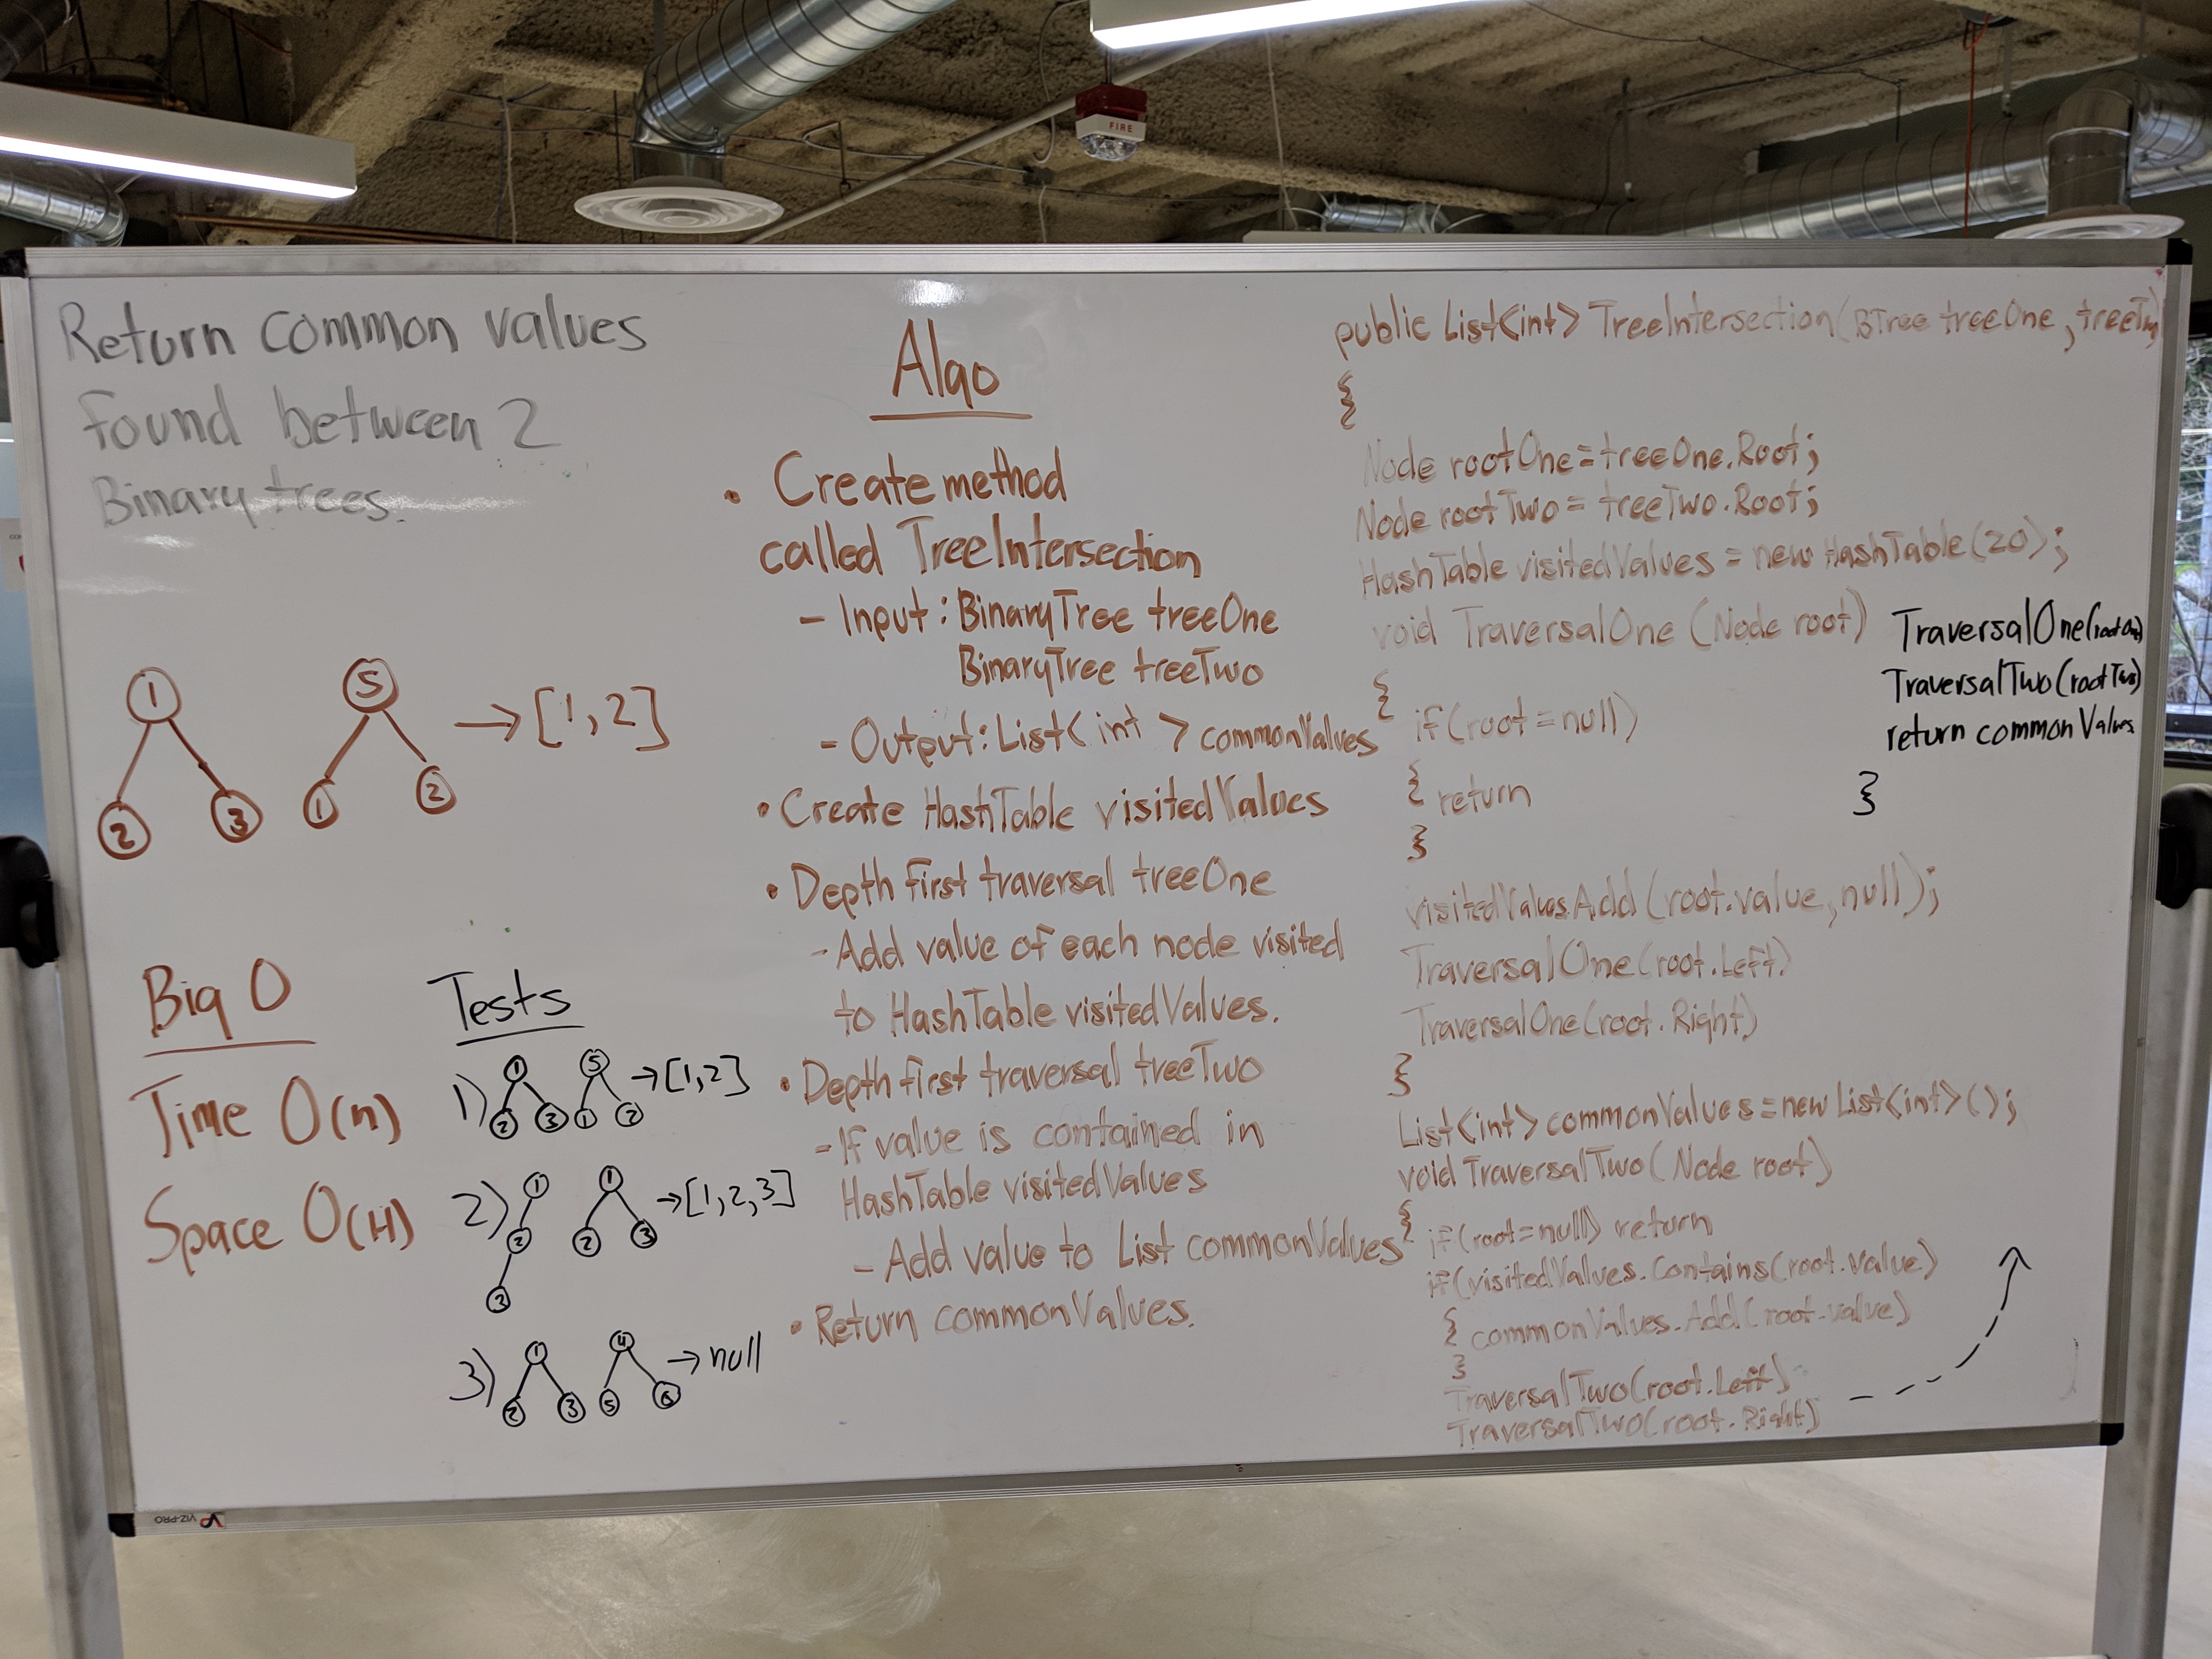 FIRE
Return common values
found between 2
Binary trees.
1
2
3
5
1
2
→ [1,2]
Big O
Time O(n)
Space O(H)
Tests
1)
1
2
3
5
1
2
→ [1,2]
2)
1
2
3
1
2
3
→ [1,2,3]
3)
1
2
3
4
5
6
→ null
Algo
• Create method
called TreeIntersection
- Input: BinaryTree treeOne
BinaryTree treeTwo
- Output: List<int> commonValues
• Create HashTable visitedValues
• Depth first traversal treeOne
- Add value of each node visited
to HashTable visitedValues.
• Depth first traversal treeTwo
- If value is contained in
HashTable visitedValues
- Add value to List commonValues
• Return commonValues.
public List<int> TreeIntersection(BTree treeOne, treeTwo)
{
Node rootOne = treeOne.Root;
Node rootTwo = treeTwo.Root;
HashTable visitedValues = new HashTable(20);
void TraversalOne (Node root)
{
if(root = null)
{ return
}
visitedValues.Add(root.value, null);
TraversalOne(root.Left)
TraversalOne(root.Right)
}
List<int> commonValues = new List<int>();
void TraversalTwo(Node root)
{ if(root = null) return
if(visitedValues.Contains(root.value)
{ commonValues.Add(root.value)
}
TraversalTwo(root.Left)
TraversalTwo(root.Right)
TraversalOne(rootOne)
TraversalTwo(rootTwo)
return commonValues
}
VIZ-PRO